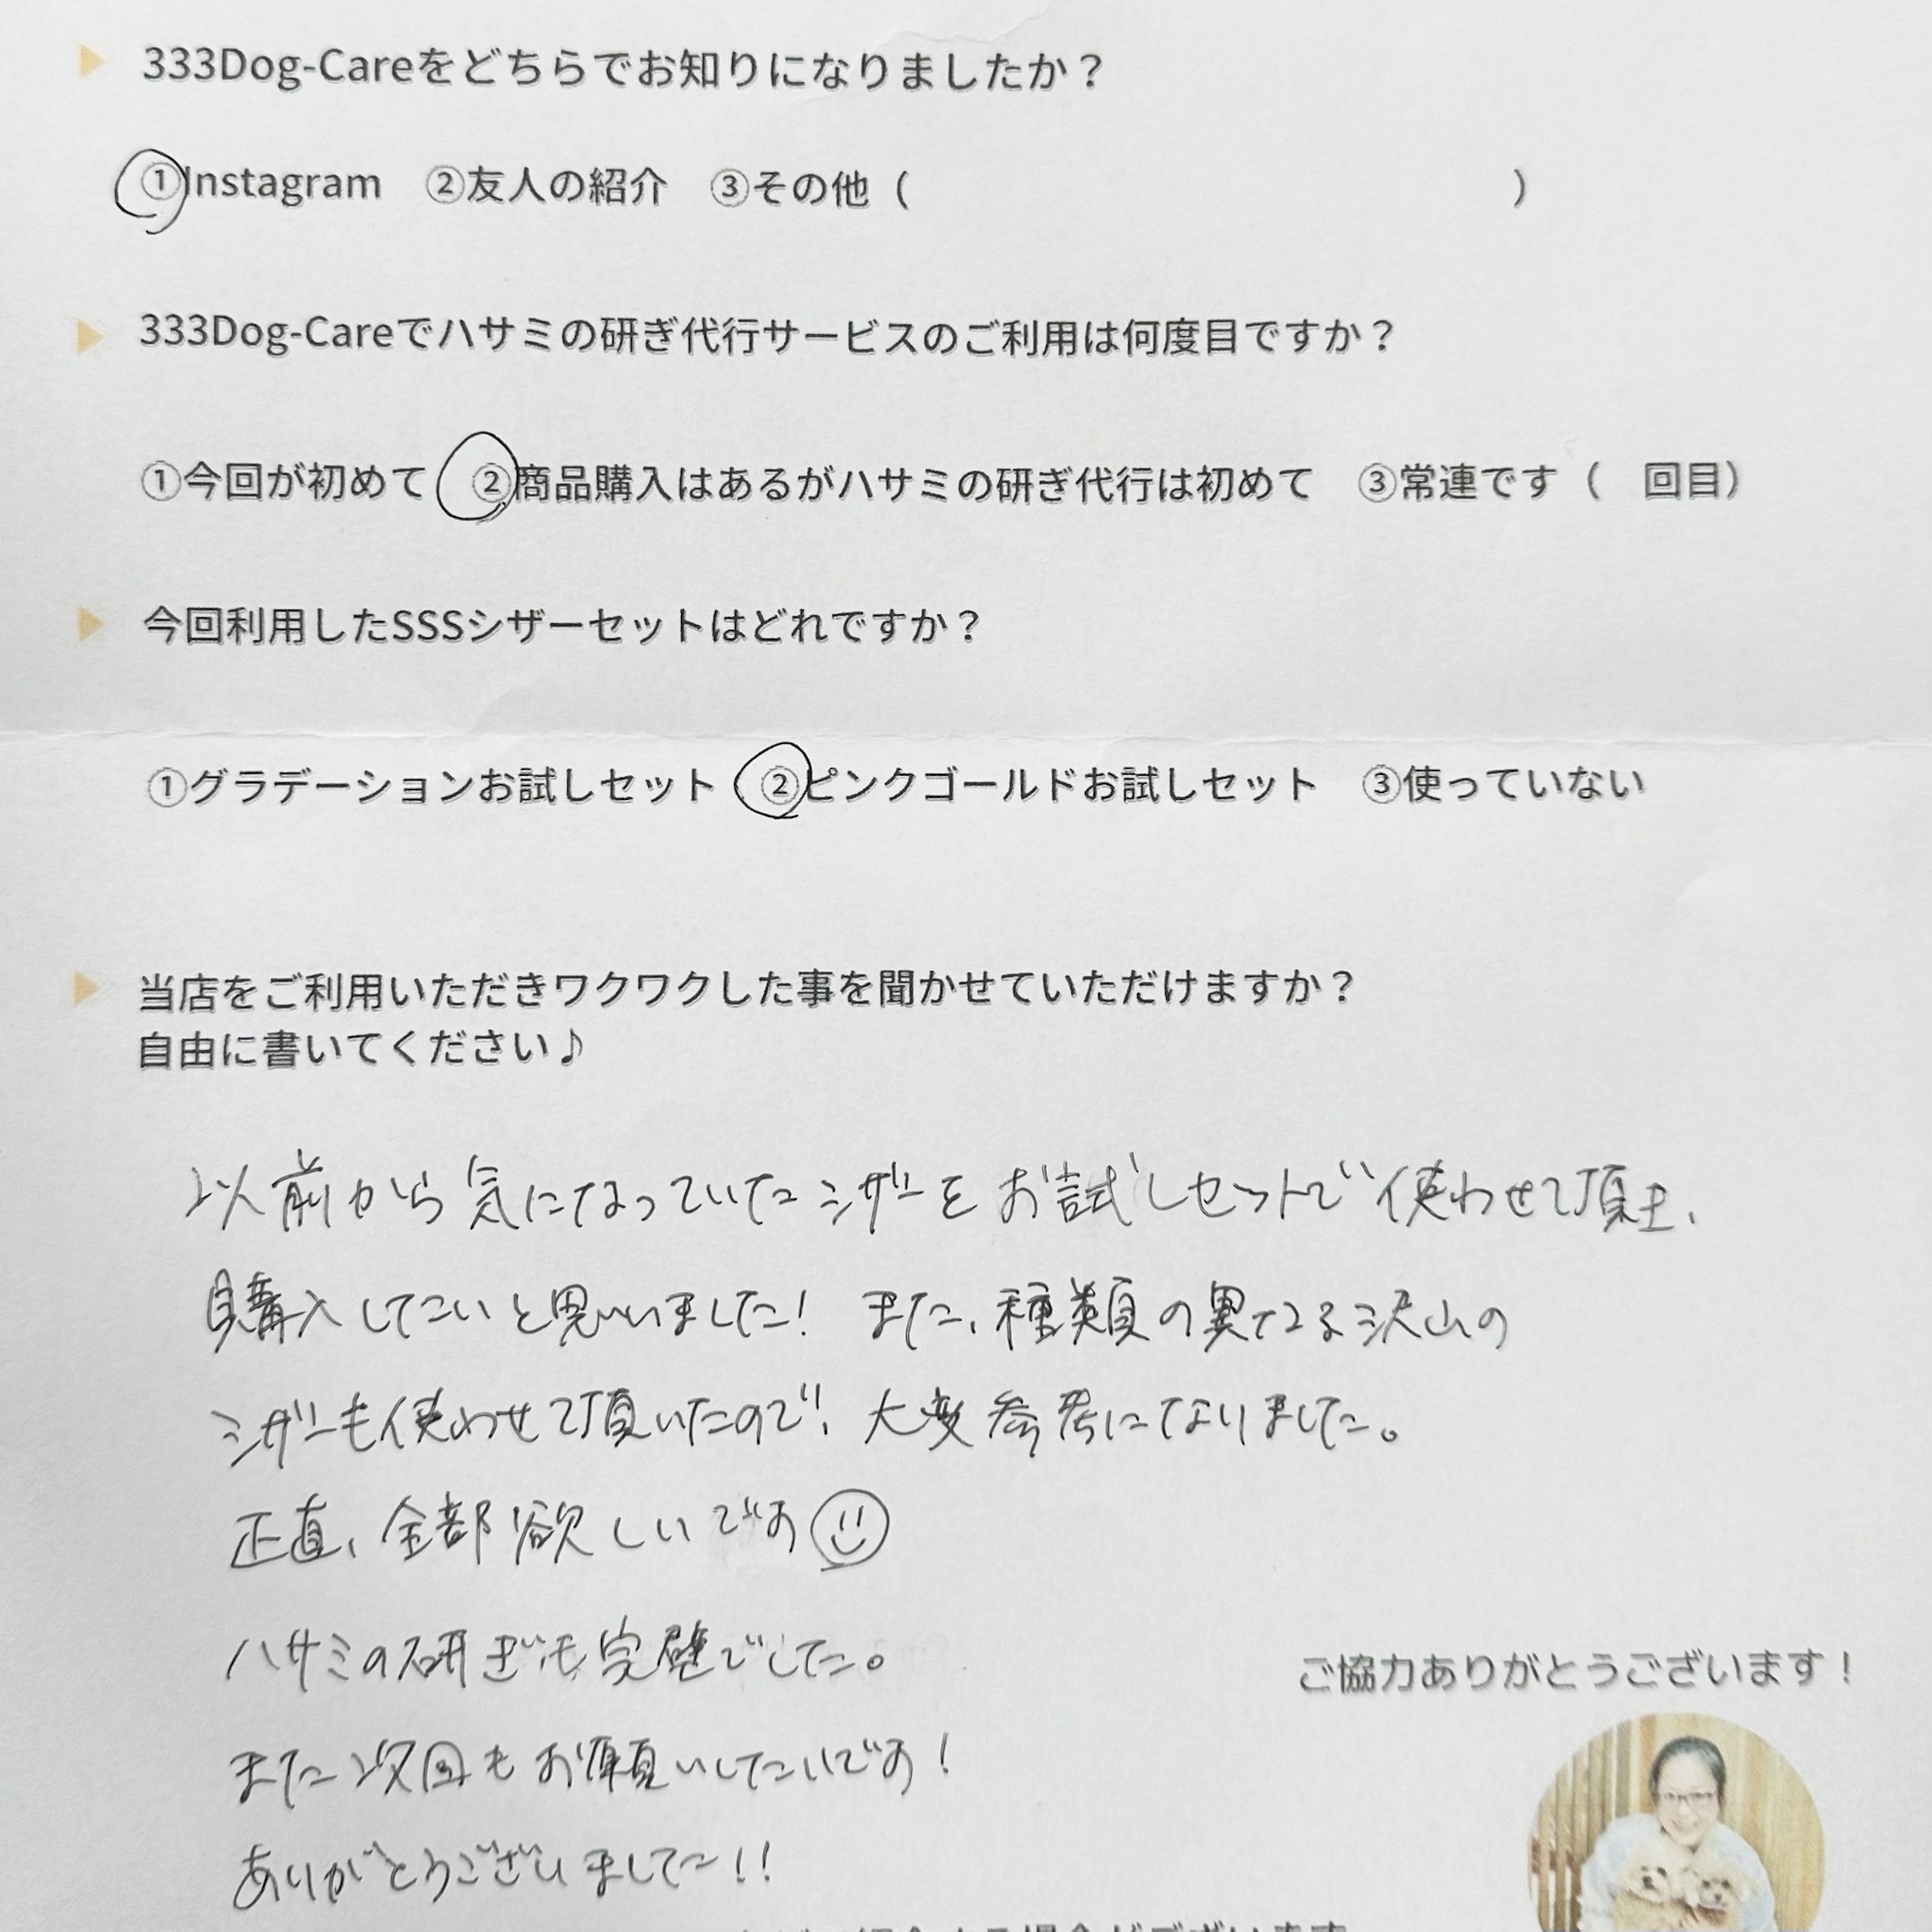 333Dog-Careをどちらでお知りになりましたか？
①Instagram ②友人の紹介 ③その他（ ）
333Dog-Careでハサミの研ぎ代行サービスのご利用は何度目ですか？
①今回が初めて ②商品購入はあるがハサミの研ぎ代行は初めて ③常連です（ 回目）
今回利用したSSSシザーセットはどれですか？
①グラデーションお試しセット ②ピンクゴールドお試しセット ③使っていない
当店をご利用いただきワクワクした事を聞かせていただけますか？
自由に書いてください♪
以前から気になっていたシザーをお試しセットで使わせて頂き、
購入したいと思いました！ また、種類の異なる沢山の
シザーも使わせて頂いたので、大変参考になりました。
正直、全部欲しいです
ハサミの研ぎも完璧でした。
また次回もお願いしたいです！
ありがとうございました!!
ご協力ありがとうございます！